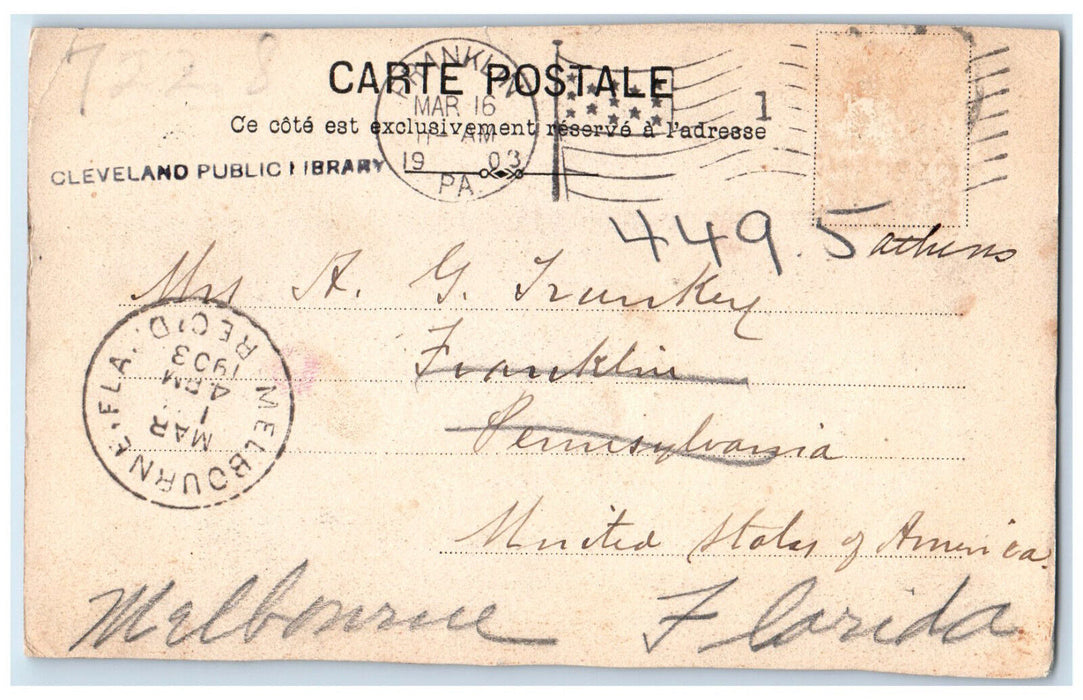 7228
CARTE POSTALE
Ce côté est exclusivement réservé à l'adresse
FRANKLIN
MAR 16
11- AM
1903
PA.
1
CLEVELAND PUBLIC LIBRARY
449.5
athens
Mrs A. G. Trunkey
Franklin
Pennsylvania
United States of America
Melbourne Florida
MELBOURNE, FLA.
REC'D.
MAR
4 PM
1903